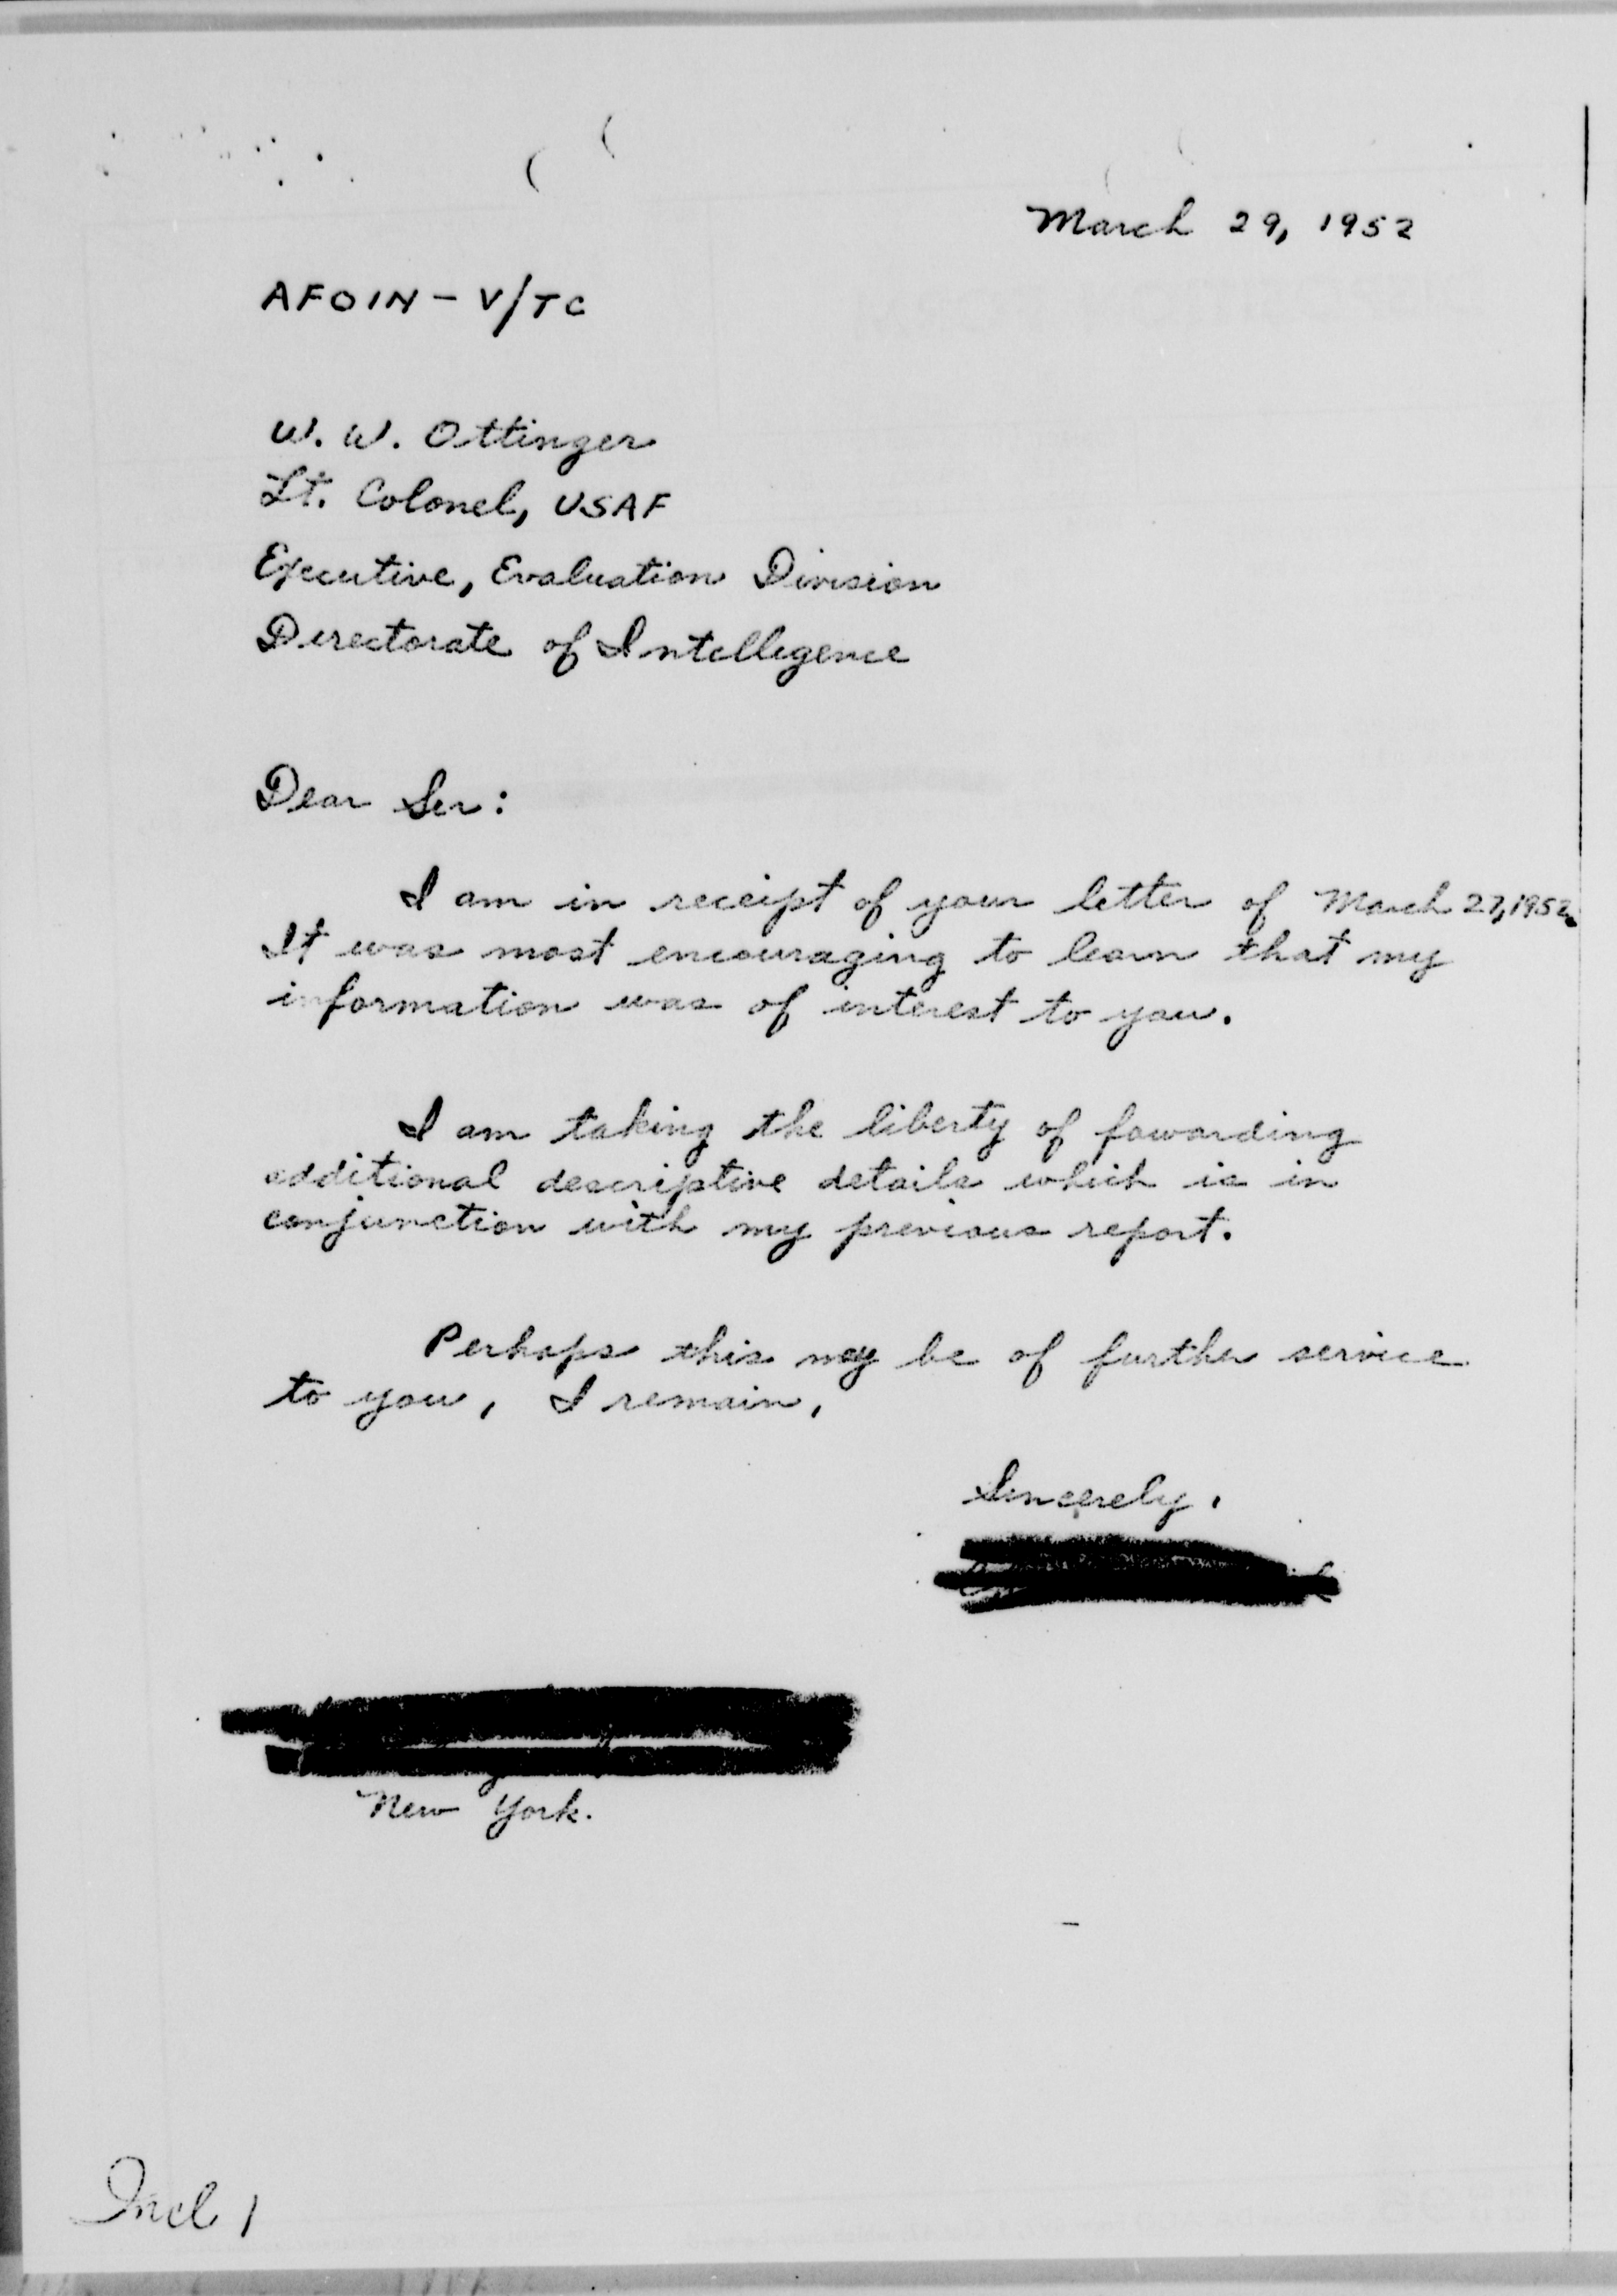 March 29, 1952
AFOIN - V/TC
W. W. Ottinger
Lt. Colonel, USAF
Executive, Evaluation Division
Directorate of Intelligence
Dear Sir:
I am in receipt of your letter of March 27, 1952.
It was most encouraging to learn that my
information was of interest to you.
I am taking the liberty of fowarding
additional descriptive details which is in
conjunction with my previous report.
Perhaps this may be of further service
to you, I remain,
Sincerely,
New York.
Incl 1